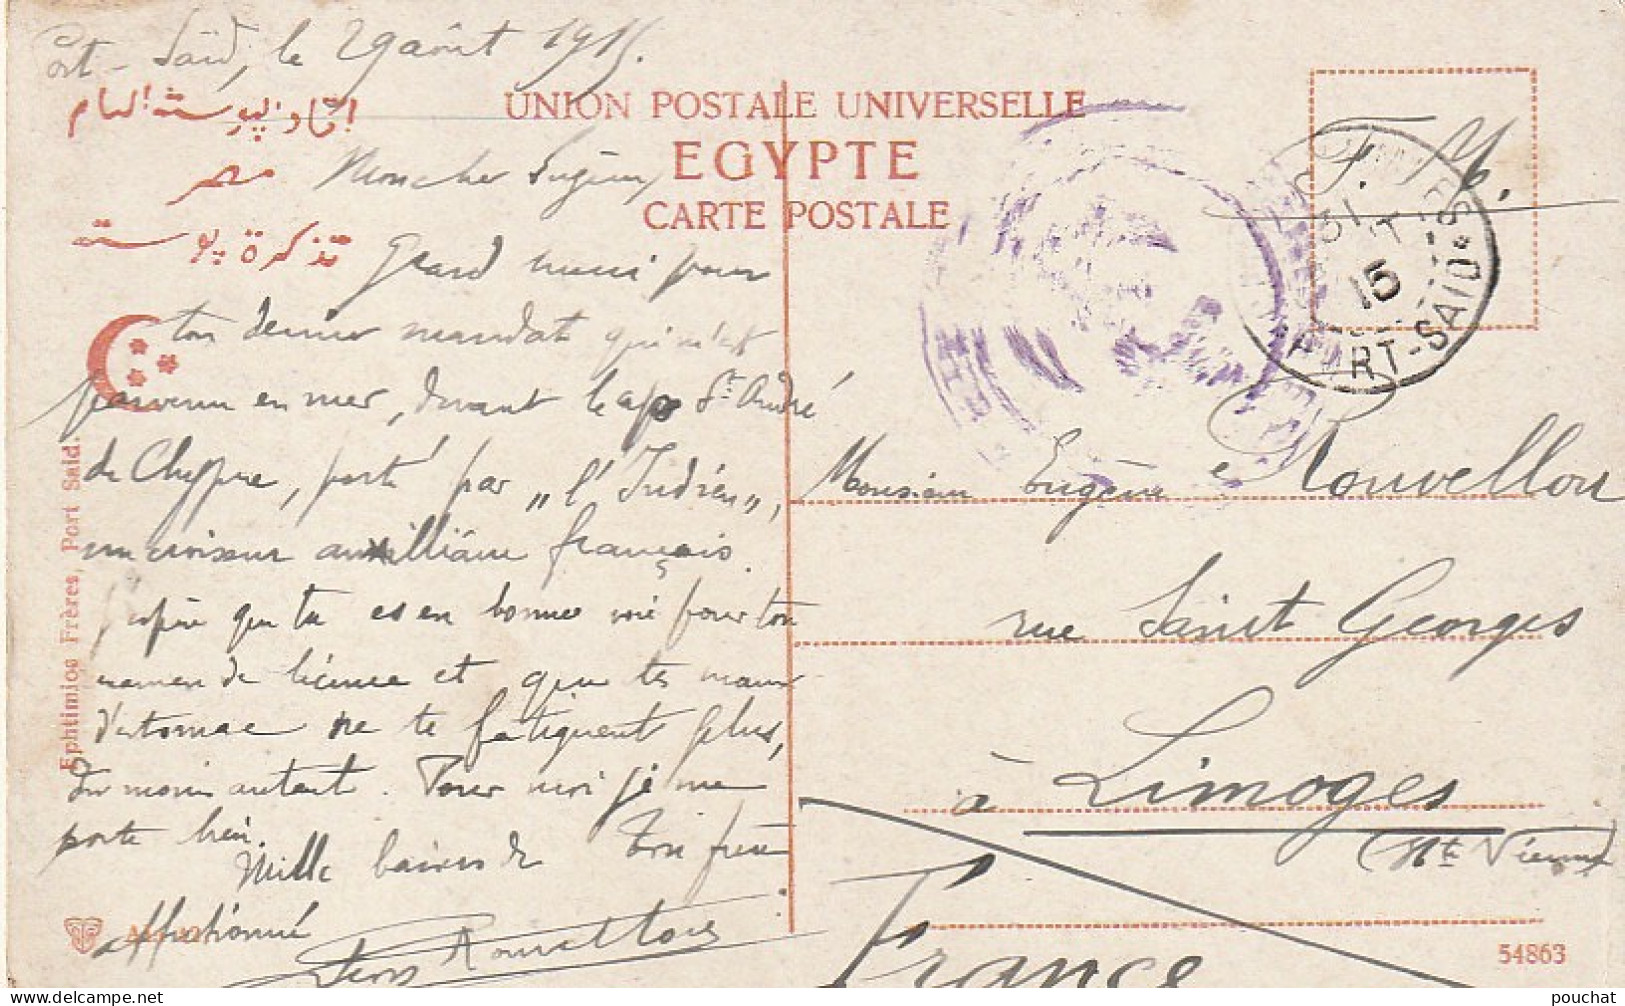 Port-Saïd, le 29 août 1915.
UNION POSTALE UNIVERSELLE
EGYPTE
CARTE POSTALE
اتحاد البوسته العام
مصر
تذكرة بوسته
Mon cher Eugène,
Grand merci pour
ton dernier mandat qui m'est
parvenu en mer, devant le cap St André
de Chypre, porté par "l'Indien",
un croiseur auxilliaire français.
J'espère que tu es en bonne voie pour ton
examen de licence et que tes maux
d'estomac ne te fatiguent plus,
du moins autant. Pour moi je me
porte bien.
Mille baisers de Ton frère
affectionné
Rouvellou
Ephtimios Frères, Port Said.
54863
F. M.
31
15
PORT-SAÏD
Monsieur Eugène Rouvellou
rue Saint Georges
à Limoges
(Hte Vienne)
France
pouchat